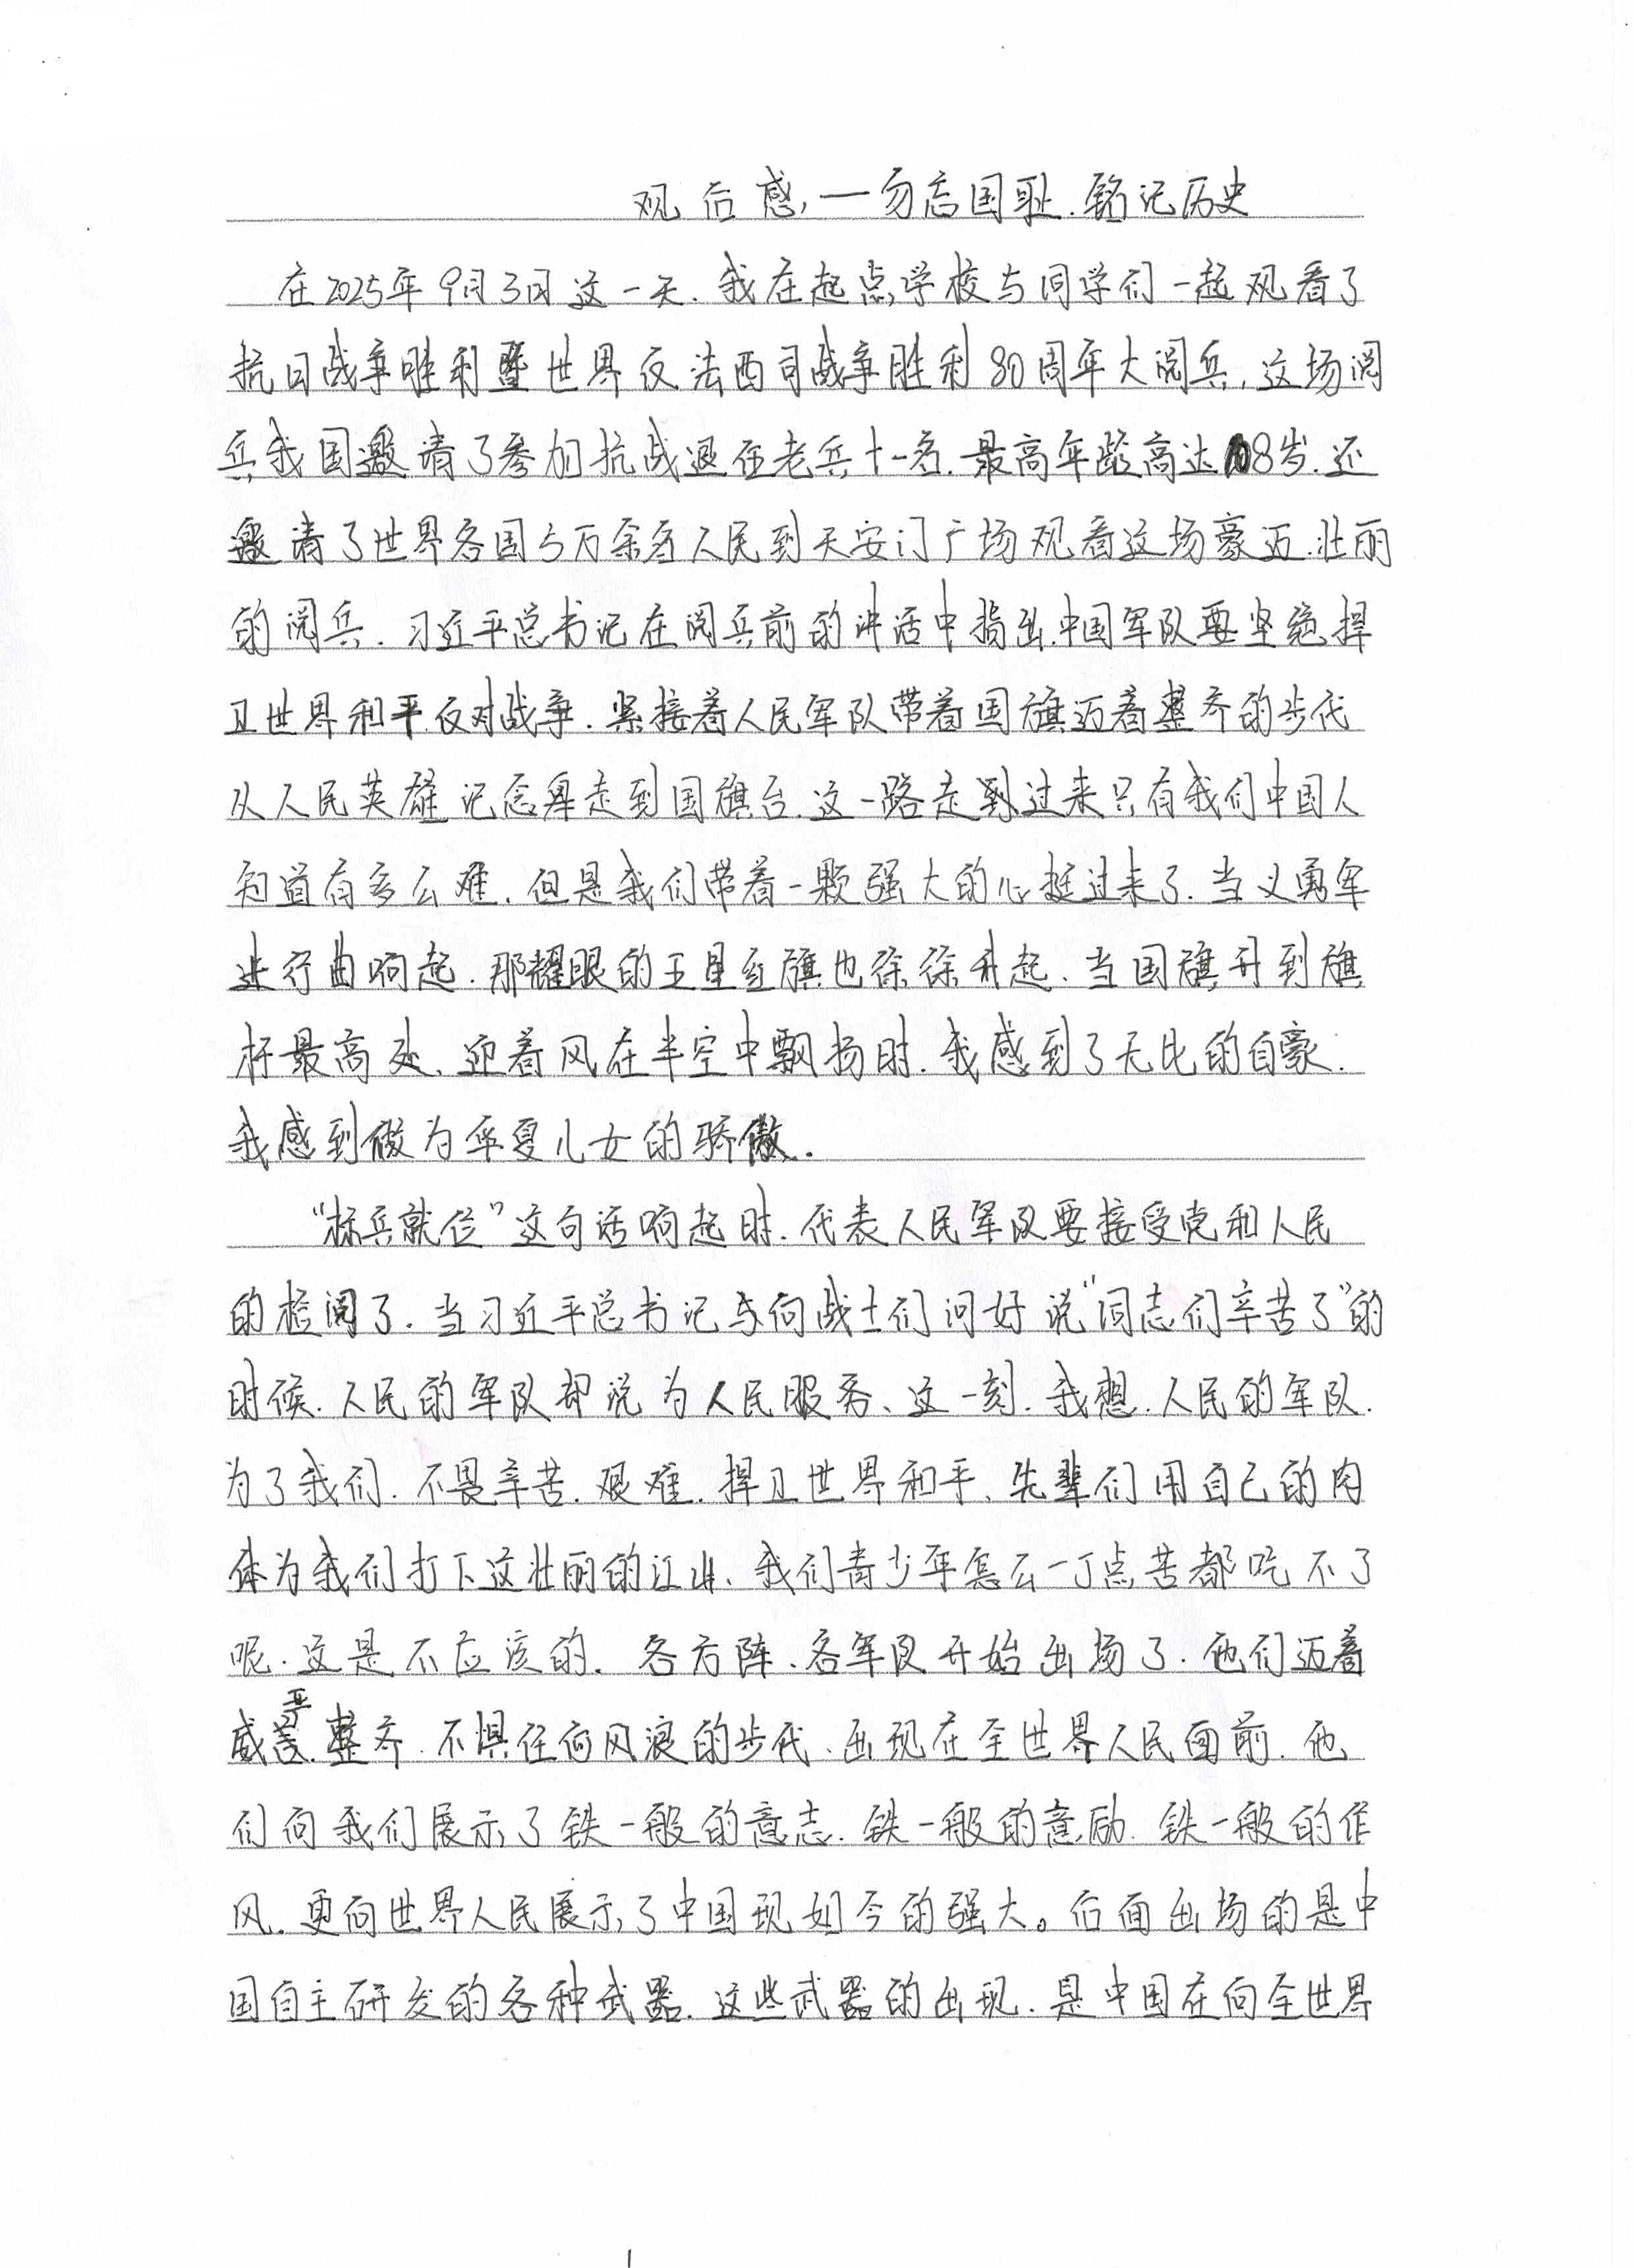 观后感,一勿忘国耻.铭记历史
在2025年9月3日这一天.我在起点学校与同学们一起观看了
抗日战争胜利暨世界反法西司战争胜利80周年大阅兵,这场阅
兵我国邀请了参加抗战退伍老兵十一名.最高年龄高达108岁.还
邀请了世界各国5万余名人民到天安门广场观看这场豪迈.壮丽
的阅兵.习近平总书记在阅兵前的讲话中指出.中国军队要坚绝捍
卫世界和平.反对战争.紧接着人民军队带着国旗迈着整齐的步代
从人民英雄记念碑走到国旗台.这一路走到过来只有我们中国人
知道有多么难.但是我们带着一颗强大的心挺过来了.当义勇军
进行曲响起.那耀眼的五星红旗也徐徐升起.当国旗升到旗
杆最高处、迎着风在半空中飘扬时.我感到了无比的自豪.
我感到做为华夏儿女的骄傲.
"标兵就位"这句话响起时.代表人民军队要接受党和人民
的检阅了.当习近平总书记与向战士们问好说"同志们辛苦了"的
时候.人民的军队都说为人民服务、这一刻.我想.人民的军队.
为了我们.不畏辛苦.艰难.捍卫世界和平、先辈们用自己的肉
体为我们打下这壮丽的江山、我们青少年怎么一丁点苦都吃不了
呢.这是不应该的.各方阵、各军队开始出场了.他们迈着
威严.整齐.不惧任何风浪的步代、出现在全世界人民面前.他
们向我们展示了铁一般的意志.铁一般的意励.铁一般的作
风.更向世界人民展示了中国现如今的强大。后面出场的是中
国自主研发的各种武器.这些武器的出现.是中国在向全世界
1